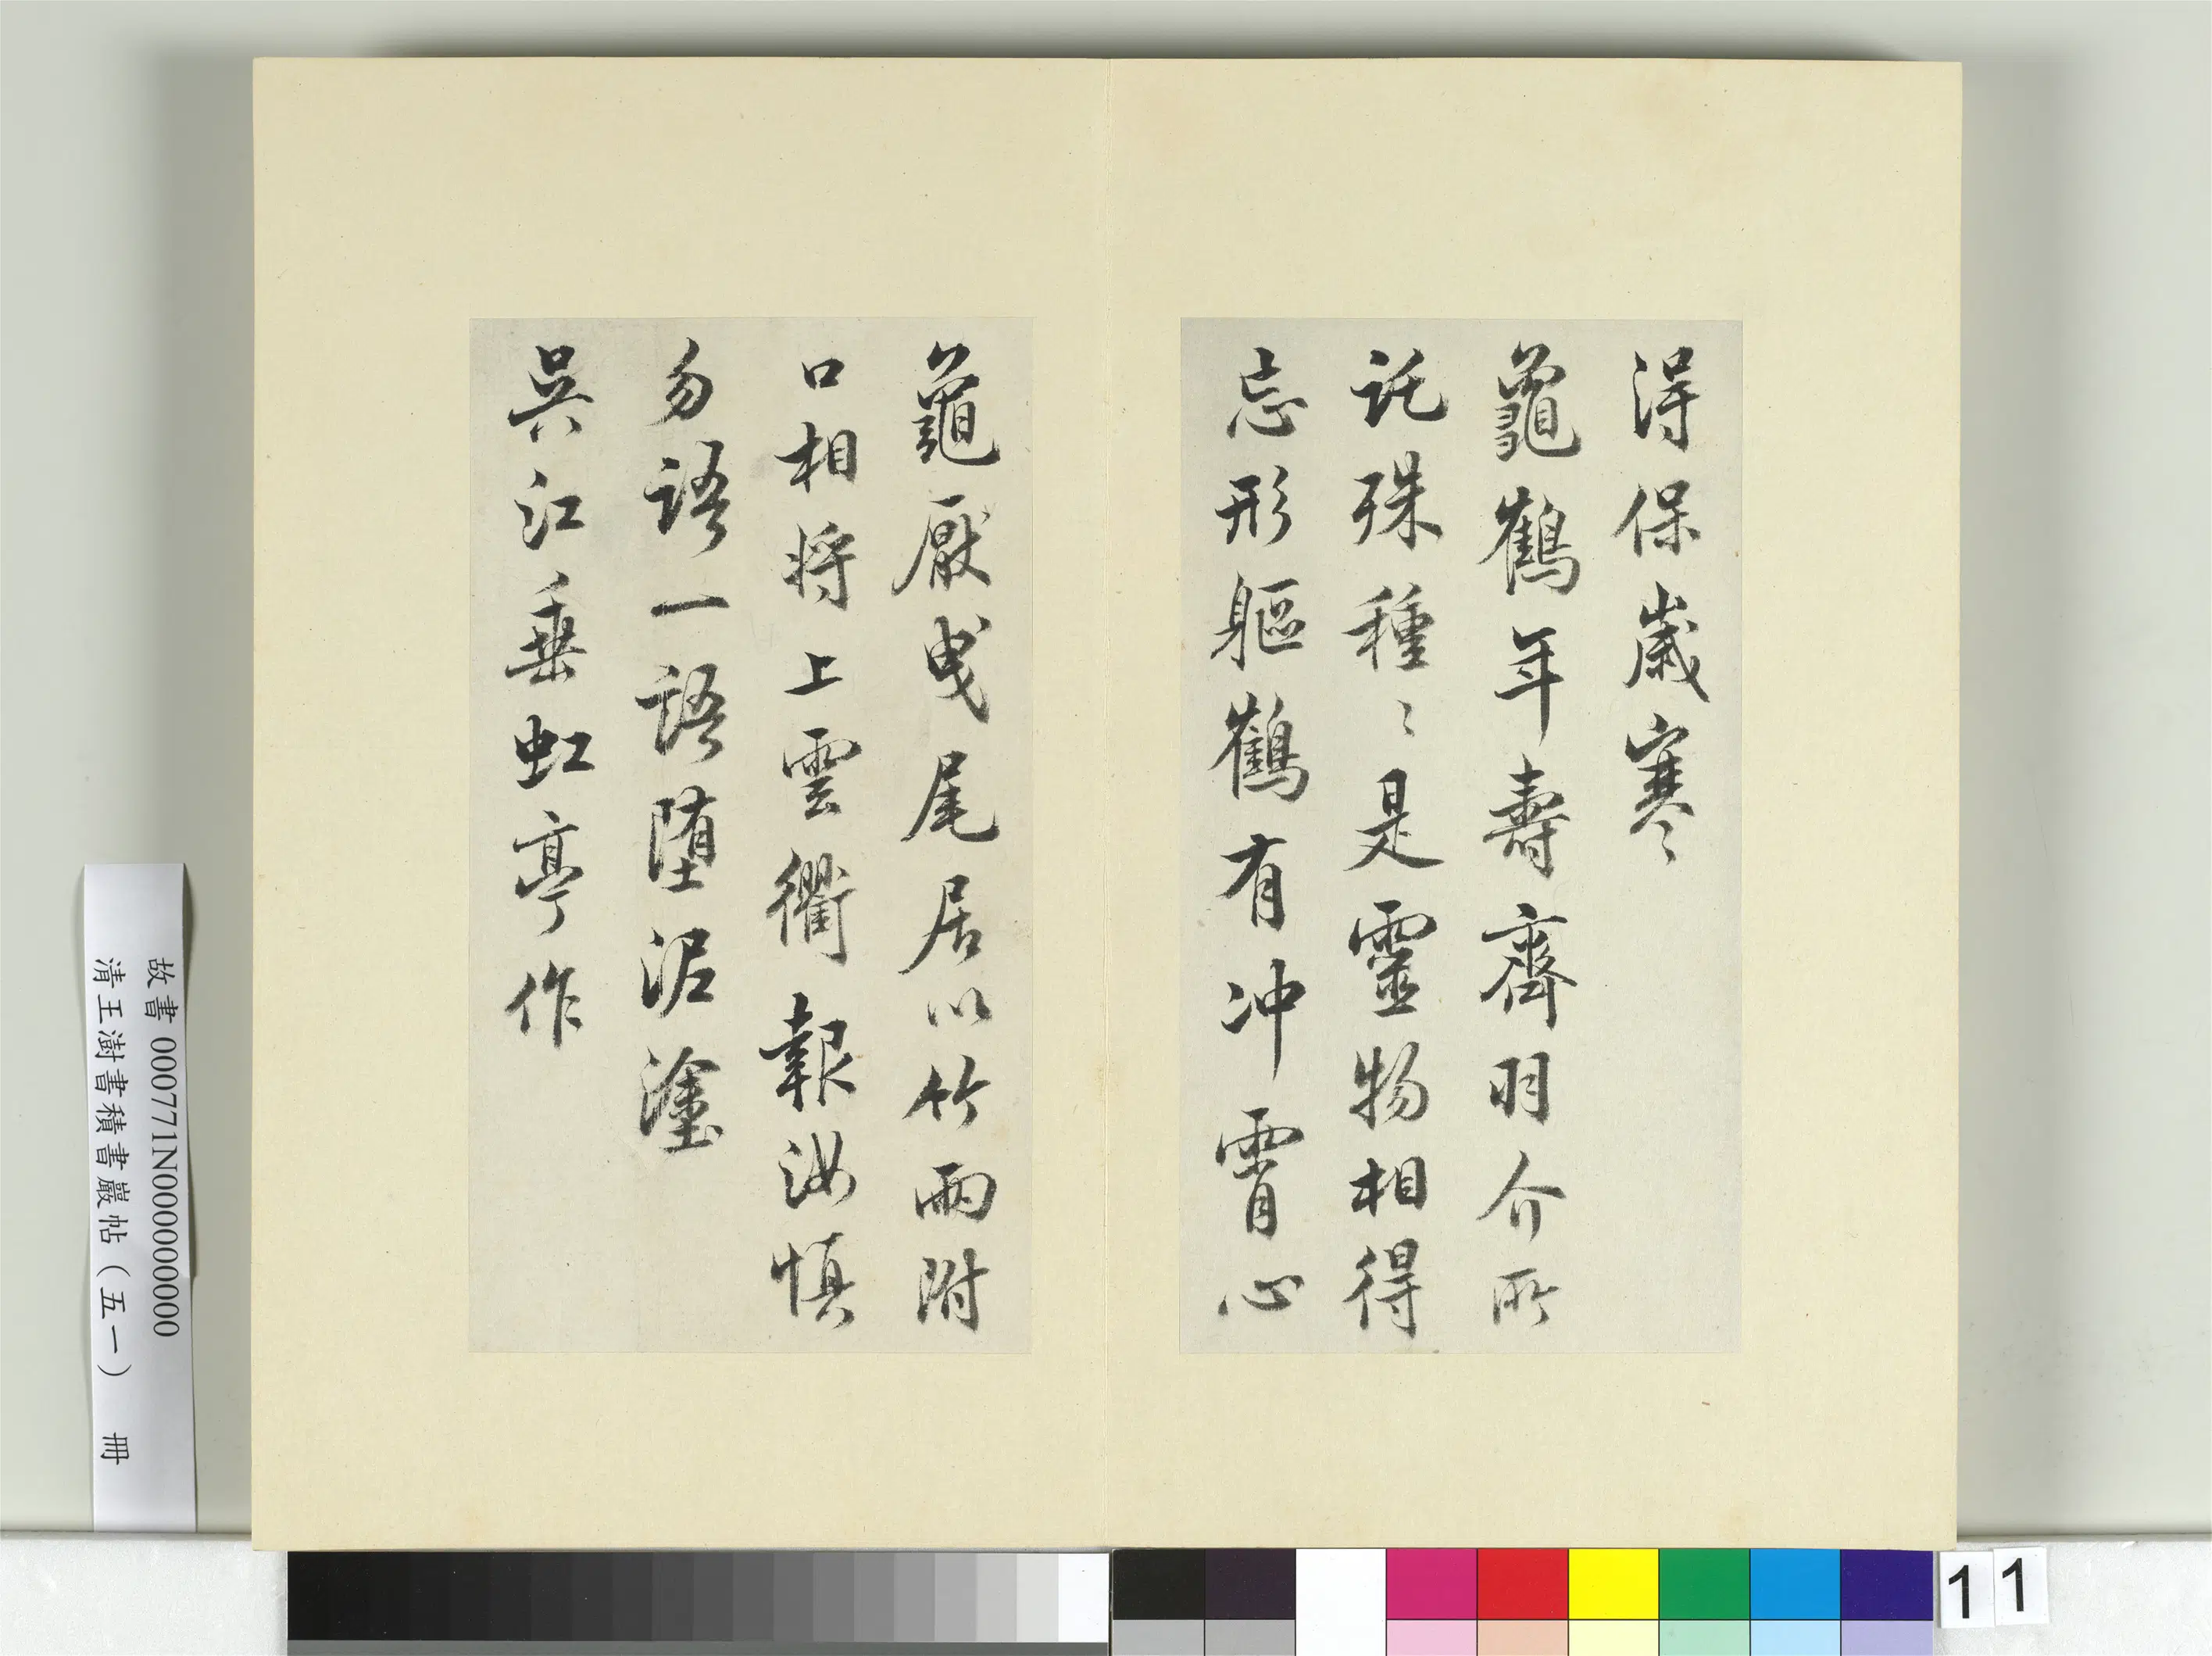 得保歲寒
龜鶴年壽齊羽介所
託殊種〻是靈物相得
忘形軀鶴有冲霄心
龜厭曳尾居以竹兩附
口相將上雲衢報汝慎
勿語一語堕泥塗
吳江垂虹亭作
故書 000771N000000000
清王澍書積書巖帖（五一） 冊
11